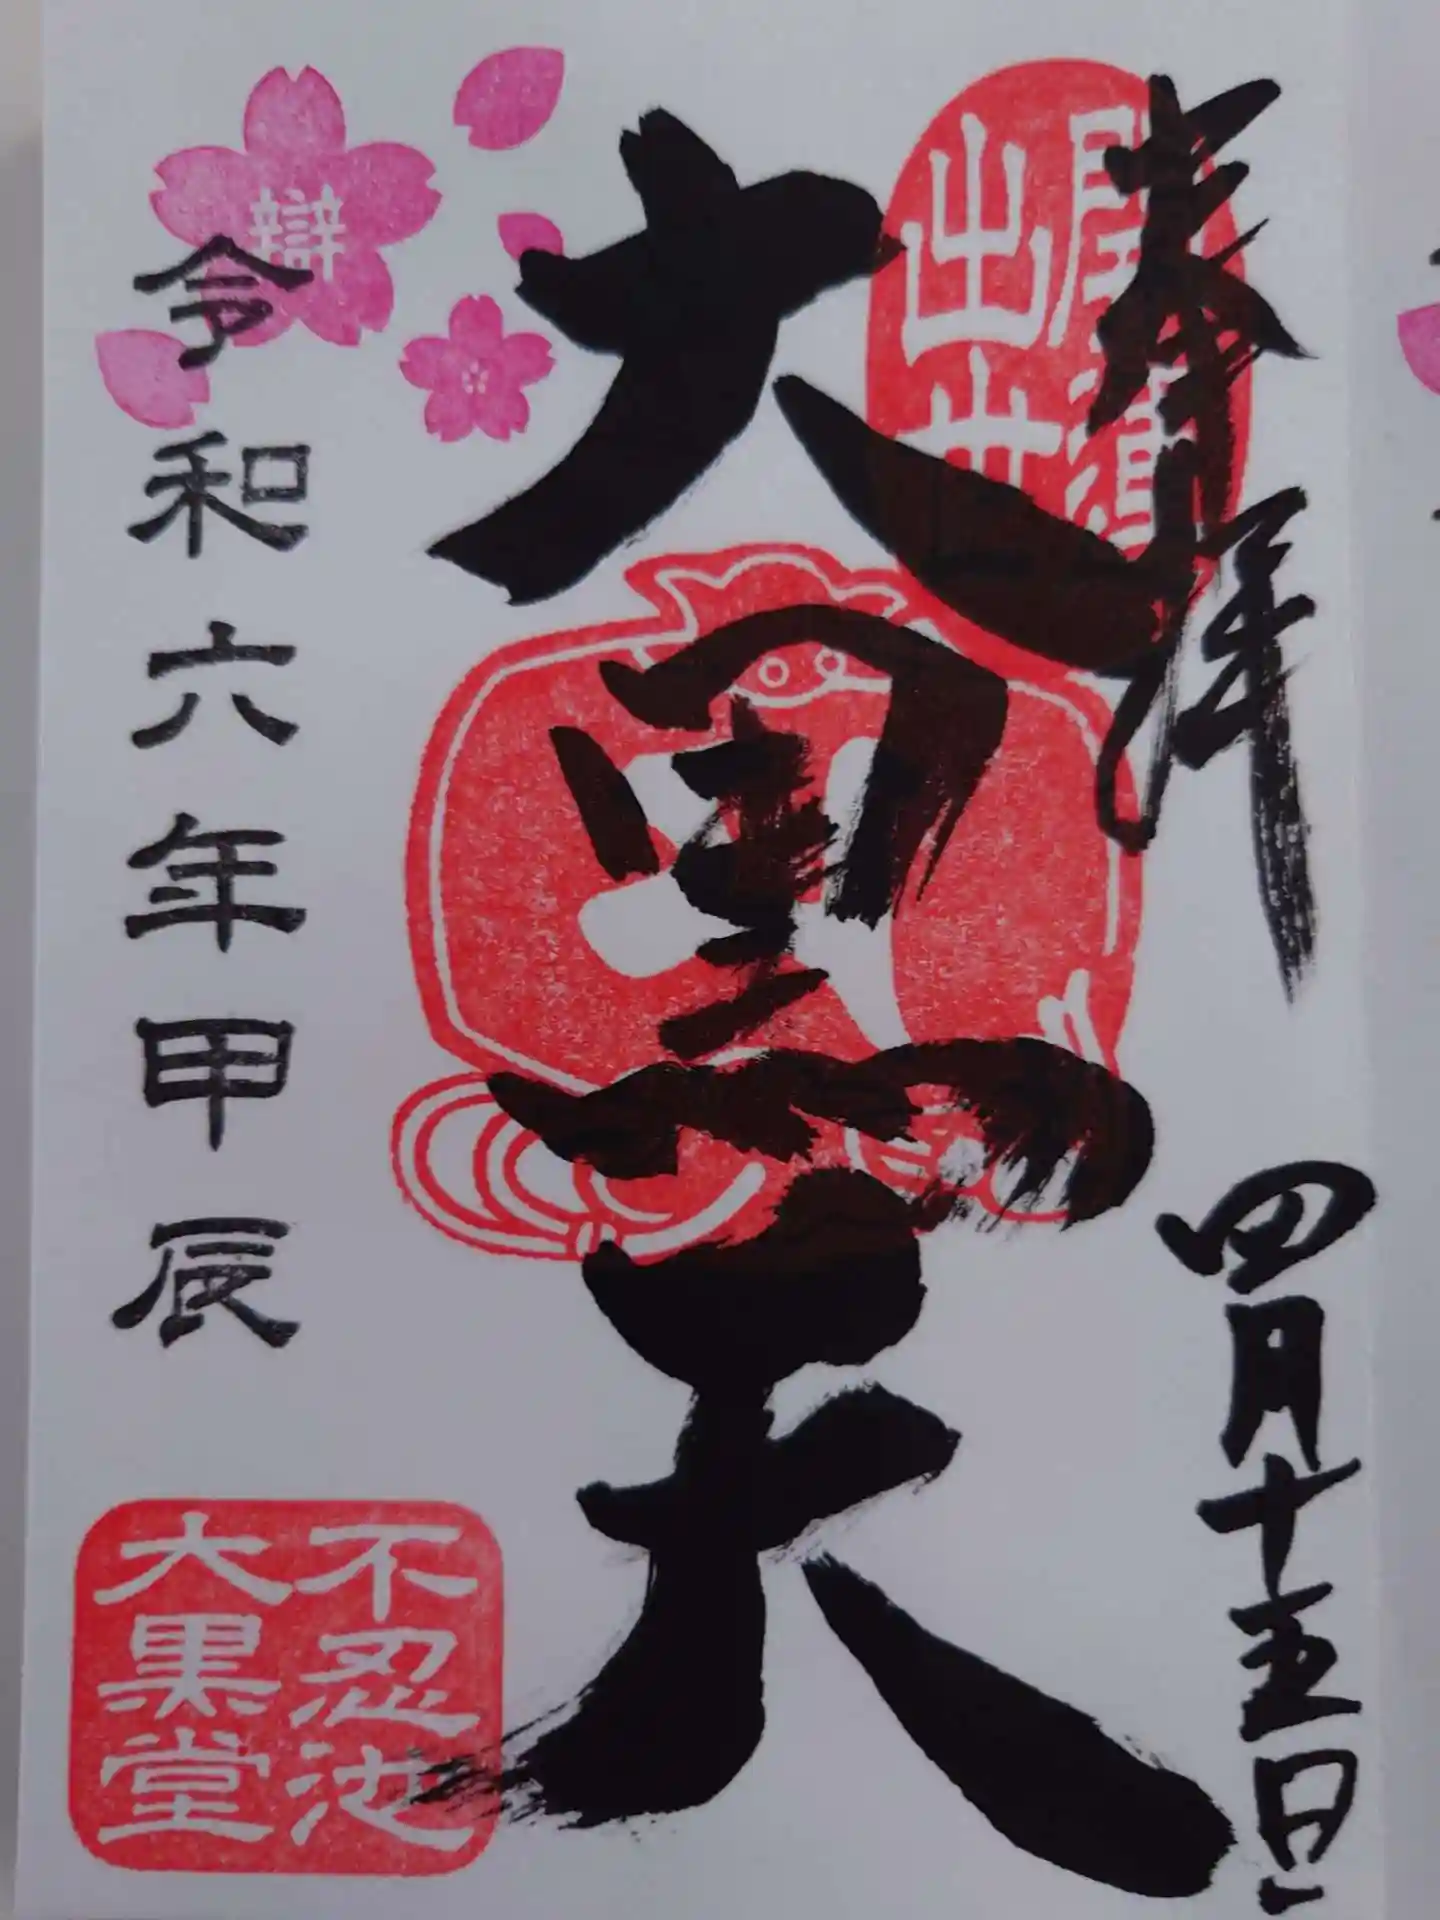 奉拝
四月十五日
出世
大黒天
辯
令和六年甲辰
不忍池
大黒堂